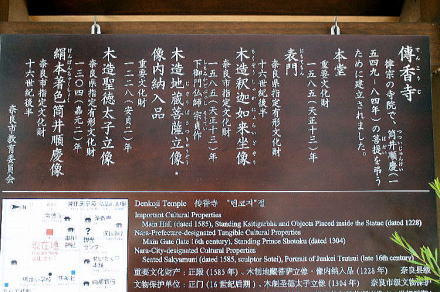 傳香寺
律宗の寺院で、筒井順慶(一
五四九-八四年)の菩提を弔う
ために建立されました。
本堂
重要文化財
一五八五(天正十三)年
表門
奈良県指定有形文化財
十六世紀後半
木造釈迦如来坐像
奈良市指定文化財
一五八五(天正十三)年
下御門仏師 宗貞作
木造地蔵菩薩立像・
像内納入品
重要文化財
一二二八(安貞二)年
木造聖徳太子立像
奈良県指定有形文化財
一三〇四(嘉元二)年
絹本著色筒井順慶像
奈良市指定文化財
十六世紀後半
奈良市教育委員会
Denkoji Temple 传香寺 "덴코지"절
Important Cultural Properties
Main Hall (dated 1585), Standing Ksitigarbha and Objects Placed inside the Statue (dated 1228)
Nara-Prefecture-designated Tangible Cultural Properties
Main Gate (late 16th century), Standing Prince Shotoku (dated 1304)
Nara-City-designated Cultural Properties
Seated Sakyamuni (dated 1585, sculptor Sotei), Portrait of Junkei Tsutsui (late 16th century)
重要文化财产:正殿(1585年)、木制地藏菩萨立像・像内纳入品(1228年) 奈良县级
文物保护单位:正门(16世纪后期)、木制圣德太子立像(1304年) 奈良市级文物保护
現在地